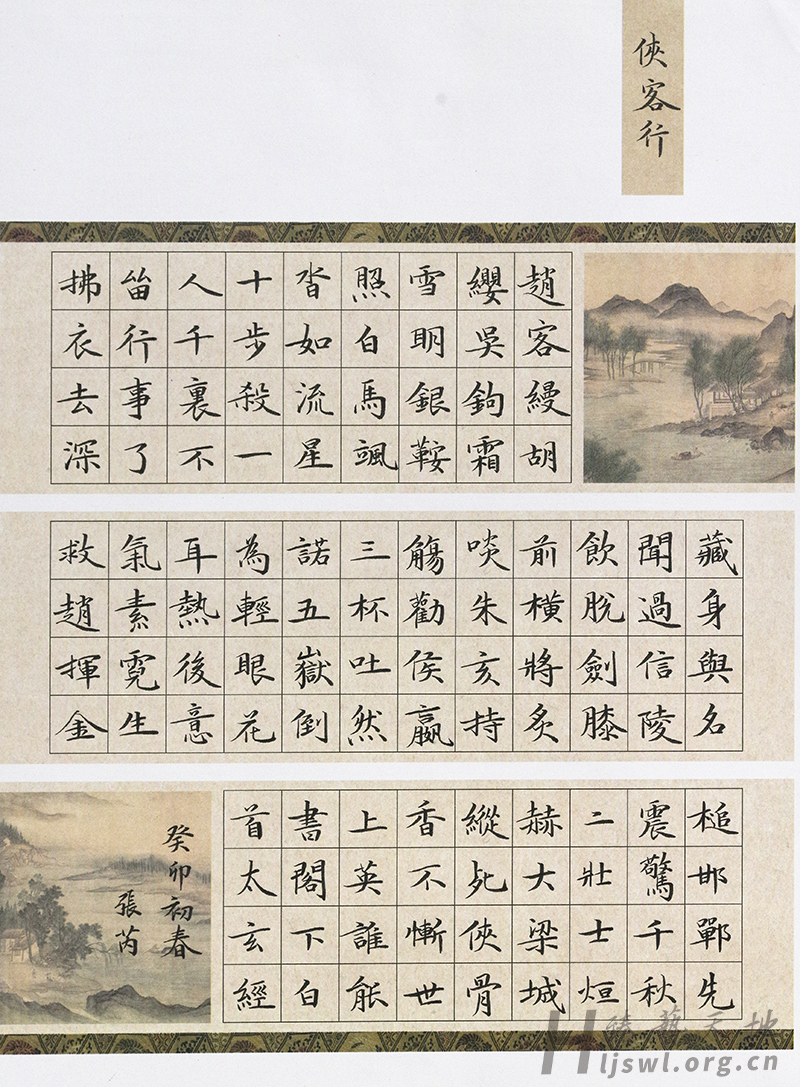 俠客行
趙客縵胡
纓吳鉤霜
雪明銀鞍
照白馬颯
沓如流星
十步殺一
人千裏不
留行事了
拂衣去深
藏身與名
聞過信陵
飲脫劍膝
前橫將炙
啖朱亥持
觴勸侯嬴
三杯吐然
諾五嶽倒
為輕眼花
耳熱後意
氣素霓生
救趙揮金
槌邯鄲先
震驚千秋
二壯士烜
赫大梁城
縱死俠骨
香不慚世
上英誰能
書閣下白
首太玄經
癸卯初春
張芮
ljswl.org.cn